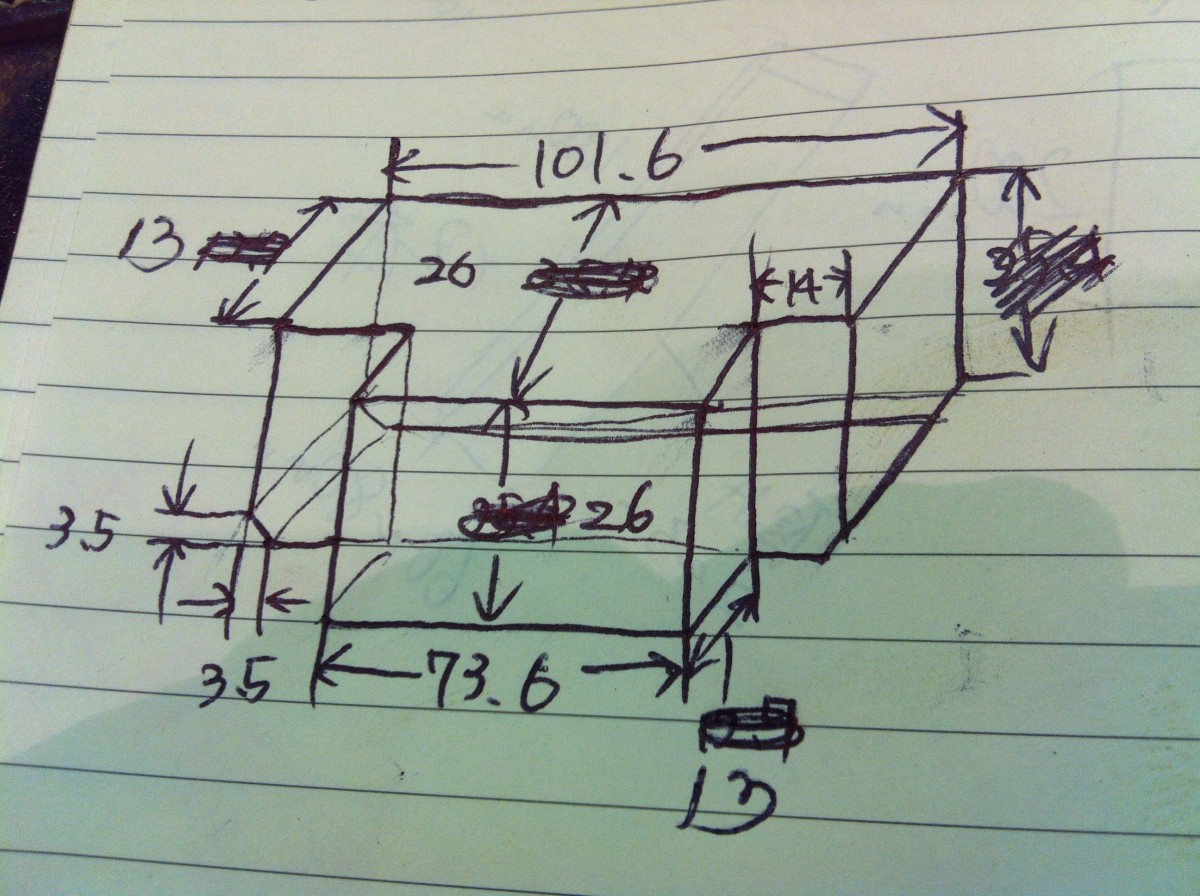 101.6
13
26
14
26
3.5
3.5
73.6
13